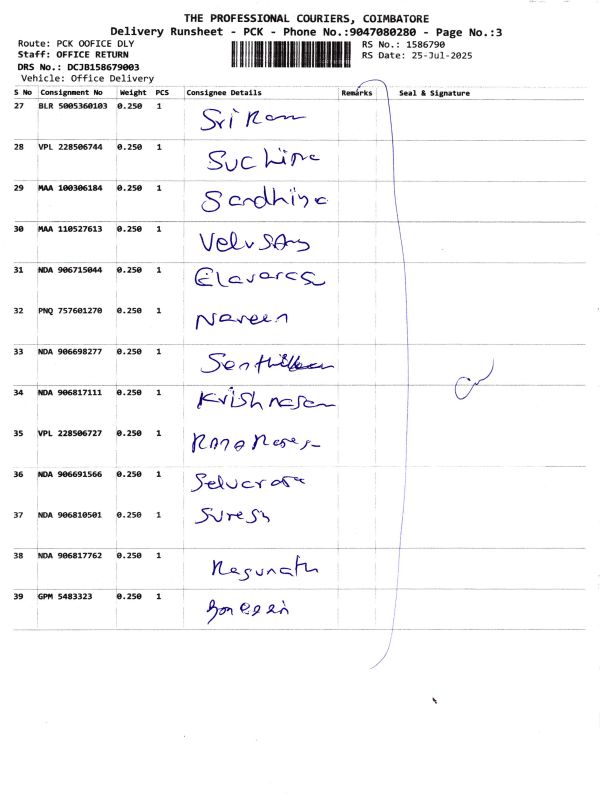 THE PROFESSIONAL COURIERS, COIMBATORE
Delivery Runsheet - PCK - Phone No.:9047080280 - Page No.:3
Route: PCK OOFICE DLY RS No.: 1586790
Staff: OFFICE RETURN RS Date: 25-Jul-2025
DRS No.: DCJB158679003
Vehicle: Office Delivery
S No Consignment No Weight PCS Consignee Details Remarks Seal & Signature
27 BLR 5005360103 0.250 1 Sri Ram
28 VPL 228506744 0.250 1
29 MAA 100306184 0.250 1
30 MAA 110527613 0.250 1 VelvSAmy
31 NDA 906715044 0.250 1
32 PNQ 757601270 0.250 1 Naveen
33 NDA 906698277 0.250 1
34 NDA 906817111 0.250 1
35 VPL 228506727 0.250 1
36 NDA 906691566 0.250 1
37 NDA 906810501 0.250 1 Suresh
38 NDA 906817762 0.250 1 Ragunath
39 GPM 5483323 0.250 1